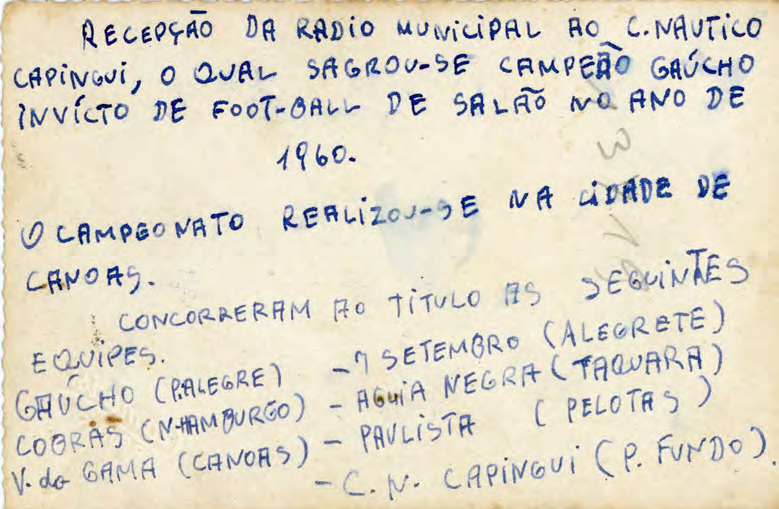 RECEPÇÃO DA RADIO MUNICIPAL AO C. NAUTICO
CAPINGUI, O QUAL SAGROU-SE CAMPEÃO GAÚCHO
INVÍCTO DE FOOT-BALL DE SALÃO NO ANO DE
1960.
O CAMPEONATO REALIZOU-SE NA CIDADE DE
CANOAS.
CONCORRERAM AO TÍTULO AS SEGUINTES
EQUIPES.
GAÚCHO (P.ALEGRE) - 7 SETEMBRO (ALEGRETE)
COBRAS (N-HAMBURGO) - AGUIA NEGRA (TAQUARA)
V. da GAMA (CANOAS) - PAULISTA (PELOTAS)
- C. N. CAPINGUI (P. FUNDO).